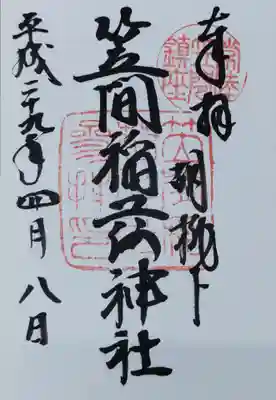 奉拝
胡桃下
笠間稲荷神社
平成二十九年四月八日